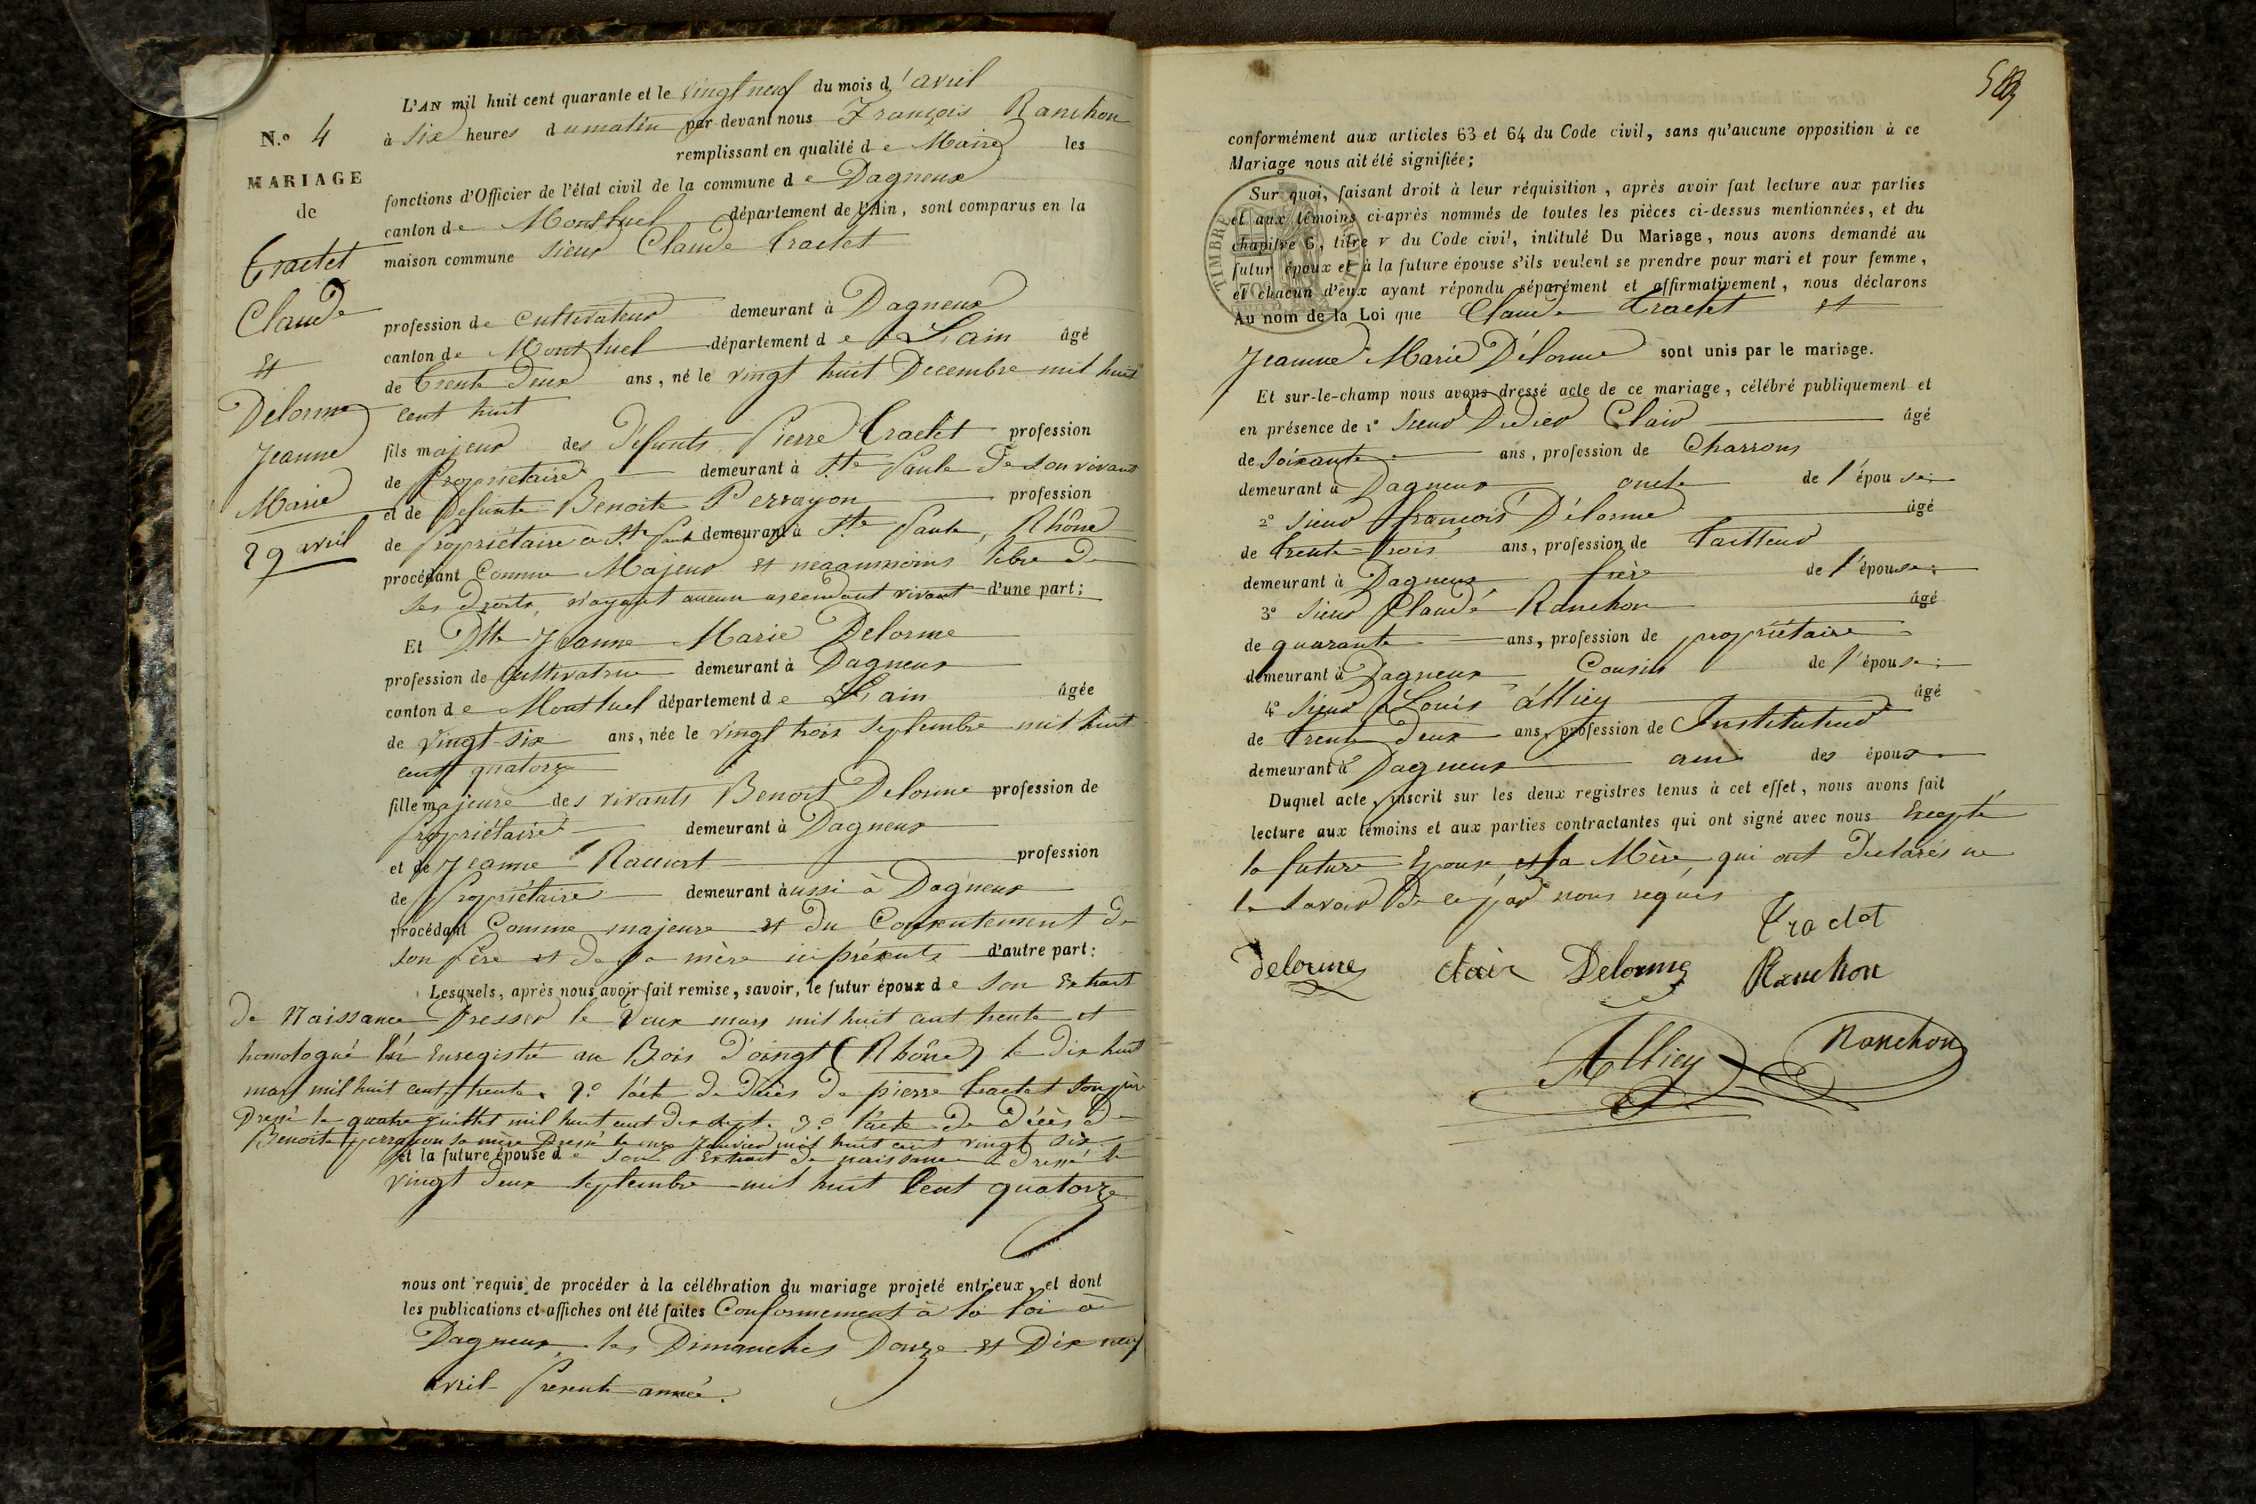 N.º 4
MARIAGE
de
Tractet
Claude
et
Delorme
Jeanne
Marie
29 avril
L'AN mil huit cent quarante et le vingt neuf du mois d'avril
à six heures du matin par-devant nous François Ranchon
remplissant en qualité de Maire les
fonctions d'Officier de l'état civil de la commune de Dagneux
canton de Montluel département de l'Ain, sont comparus en la
maison commune sieur Claude Tractet
profession de cultivateur demeurant à Dagneux
canton de Montluel département de L'ain âgé
de trente deux ans, né le vingt huit Decembre mil huit
cent huit
fils majeur des défunts Pierre Tractet profession
de Propriétaire demeurant à Ste Paule De son vivant
et de Defunte Benoite Perrayon profession
de propriétaire à Ste Paule demeurant à Ste Paule, Rhône
procédant Comme Majeur et neaanmoins libre de
ses droits, n'ayant aucun ascendant vivant d'une part;
Et Dlle Jeanne Marie Delorme
profession de Cultivatrice demeurant à Dagneux
canton de Montluel département de L'ain âgée
de vingt-six ans, née le vingt trois septembre mil huit
cent quatorze
fille majeure des vivants Benoit Delorme profession de
propriétaire demeurant à Dagneux
et de Jeanne Raccurt profession
de Propriétaire demeurant aussi à Dagneux
procédant Comme majeure et du Consentement de
son Père et de sa mère ici présents d'autre part:
Lesquels, après nous avoir fait remise, savoir, le futur époux de son Extrait
de Naissance Dresser le Deux mars mil huit cent trente et
homologué Enregistré au Bois D'oingt (Rhône) le dix huit
mars mil huit cent trente. 2º l'acte de décès de pierre Tractet son père
Dressé le quatre juillet mil huit cent dix sept. 3º l'acte de Décès de
Benoite perrayon sa mère Dressé le onze Janvier mil huit cent vingt six
et la future épouse de son Extrait de naissance dressé le
vingt deux septembre mil huit Cent quatorze
nous ont requis de procéder à la célébration du mariage projeté entr'eux, et dont
les publications et affiches ont été faites Conformement à la loi à
Dagneux les Dimanches Douze et Dix neuf
avril Présente année.
conformément aux articles 63 et 64 du Code civil, sans qu'aucune opposition à ce
Mariage nous ait été signifiée;
Sur quoi, faisant droit à leur réquisition, après avoir fait lecture aux parties
et aux témoins ci-après nommés de toutes les pièces ci-dessus mentionnées, et du
chapitre 6, titre v du Code civil, intitulé Du Mariage, nous avons demandé au
futur époux et à la future épouse s'ils veulent se prendre pour mari et pour femme,
et chacun d'eux ayant répondu séparément et affirmativement, nous déclarons
Au nom de la Loi que Claude Tractet et
Jeanne Marie Délorme sont unis par le mariage.
Et sur-le-champ nous avons dressé acte de ce mariage, célébré publiquement et
en présence de 1º sieur Didier Clair âgé
de soixante ans, profession de Charron
demeurant à Dagneux oncle de l'épouse
2º sieur françois Délorme âgé
de trente-trois ans, profession de tailleur
demeurant à Dagneux frère de l'épouse;
3º sieur Claude Ranchon âgé
de quarante ans, profession de propriétaire
demeurant à Dagneux Cousin de l'épouse;
4º sieur Louis álliey âgé
de trente deux ans, profession de Instituteur
demeurant à Dagneux ami des époux
Duquel acte, inscrit sur les deux registres tenus à cet effet, nous avons fait
lecture aux témoins et aux parties contractantes qui ont signé avec nous Excepté
la future Epouse, et sa Mère, qui ont declarés ne
le savoir de ce par nous requis
Tractet
delorme clair Delorme Ranchon
Alliey Ranchon
TIMBRE
70